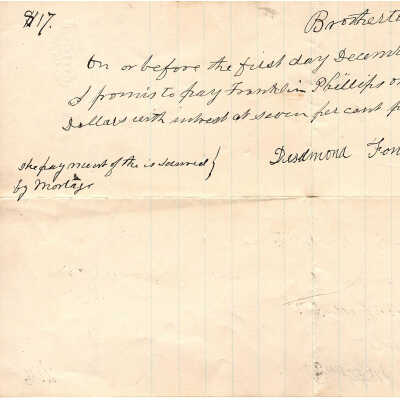 $17. Brotherto
On or before the first day Decemb
I promis to pay Franklin Phillips or
Dollars with intrest at seven per cant p
the payment of the is secured
by Mortage
Desdmond Fon